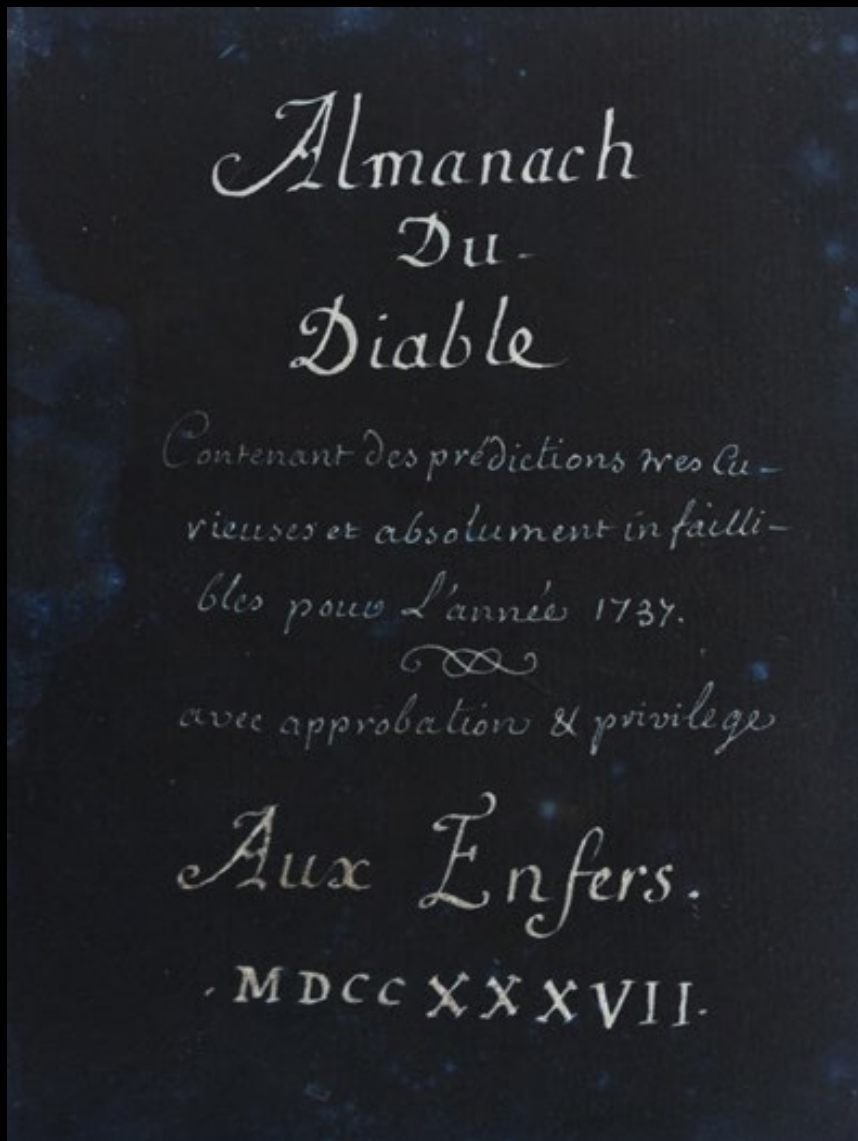 Almanach
Du-
Diable
Contenant des prédictions tres Cu-
rieuses et absolument infailli-
bles pour L'année 1737.
avec approbation & privilege
Aux Enfers.
. MDCCXXXVII.